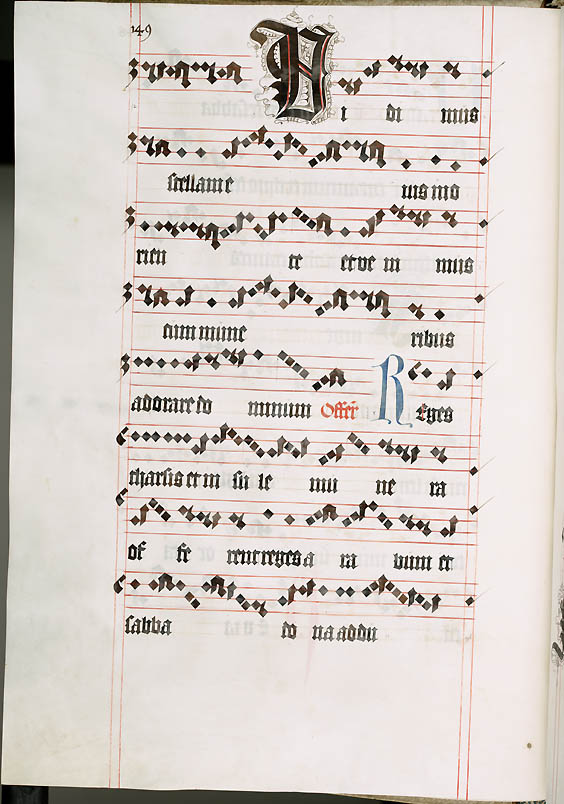 149
Vi di mus
stellam e ius in o
rien te et ve ni mus
cum mune ribus
adorare do minum Offer̄ Reges
tharsis et in su le mu ne ra
of fe rent reges a ra bum et
sabba do na addu